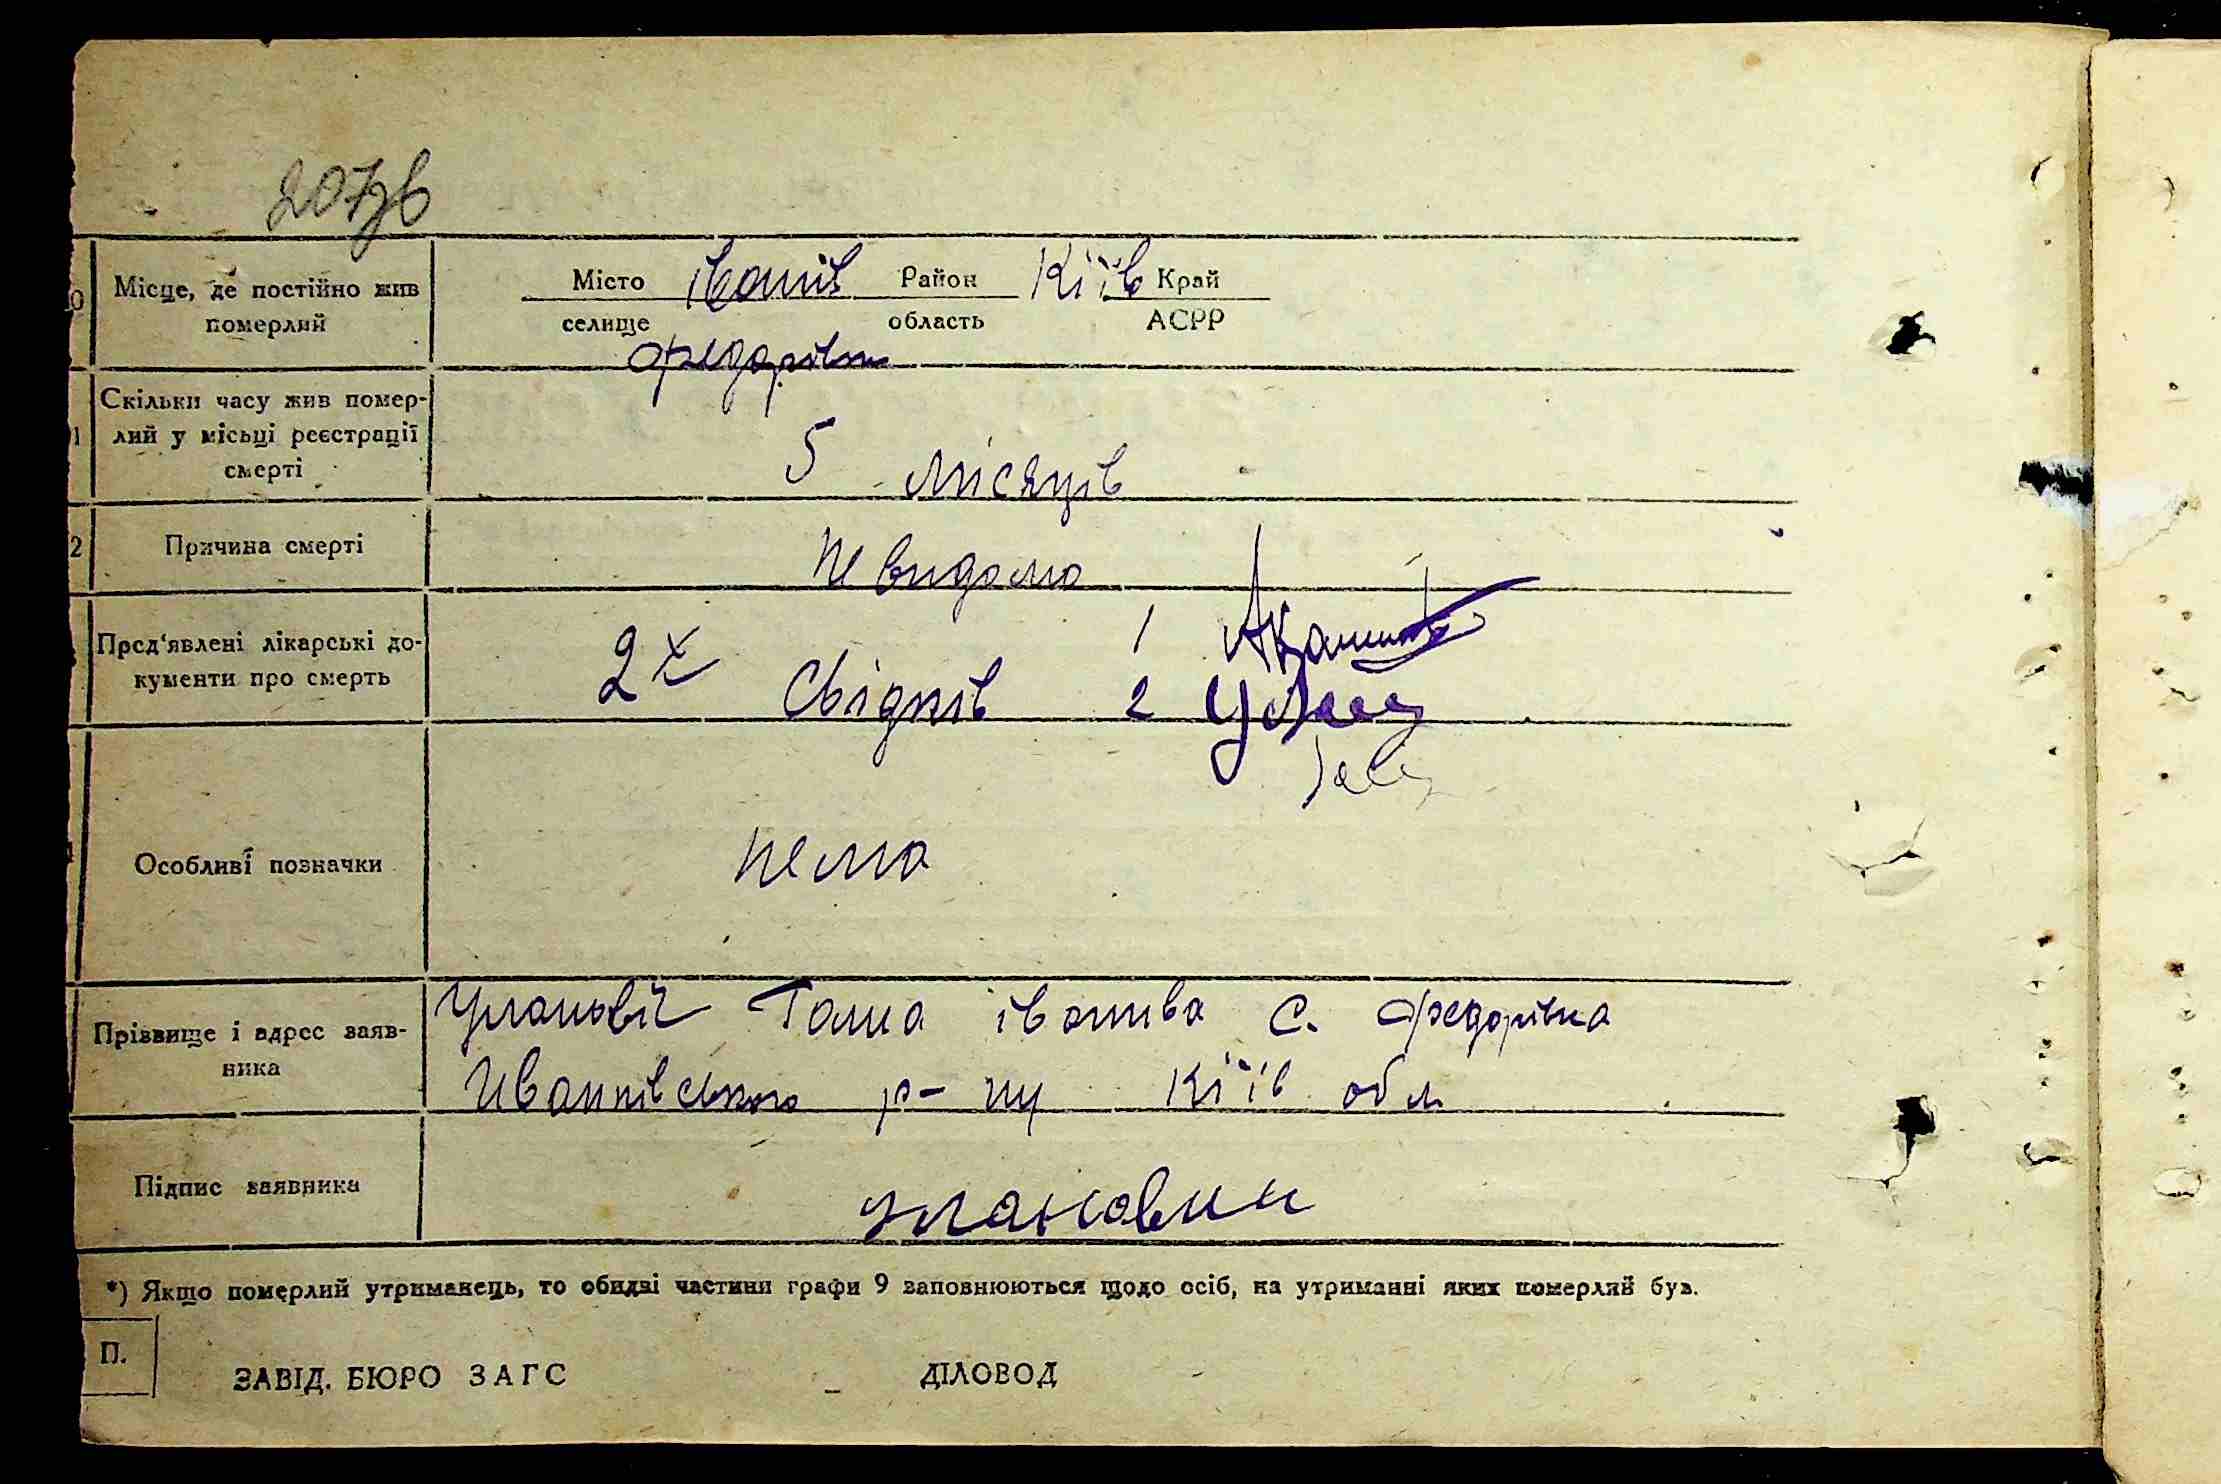 207зв
10 Місце, де постійно жив померлий
Місто іванків Район Київ Край
селище область АСРР
федорівка
11 Скільки часу жив помер-
лий у місьці реєстрації
смерті
5 місяців
2 Причина смерті
не видомо
Пред'явлені лікарські до-
кументи про смерть
1
2х свідків 2
Особливі позначки
нема
Прізвище і адрес заяв-
ника
Ганна с. федорівка
Иванківського р-ну Київ обл
Підпис заявника
уланович
*) Якщо померлий утриманець, то обидві частини графи 9 заповнюються щодо осіб, на утриманні яких померлий був.
П.
ЗАВІД. БЮРО ЗАГС ДІЛОВОД